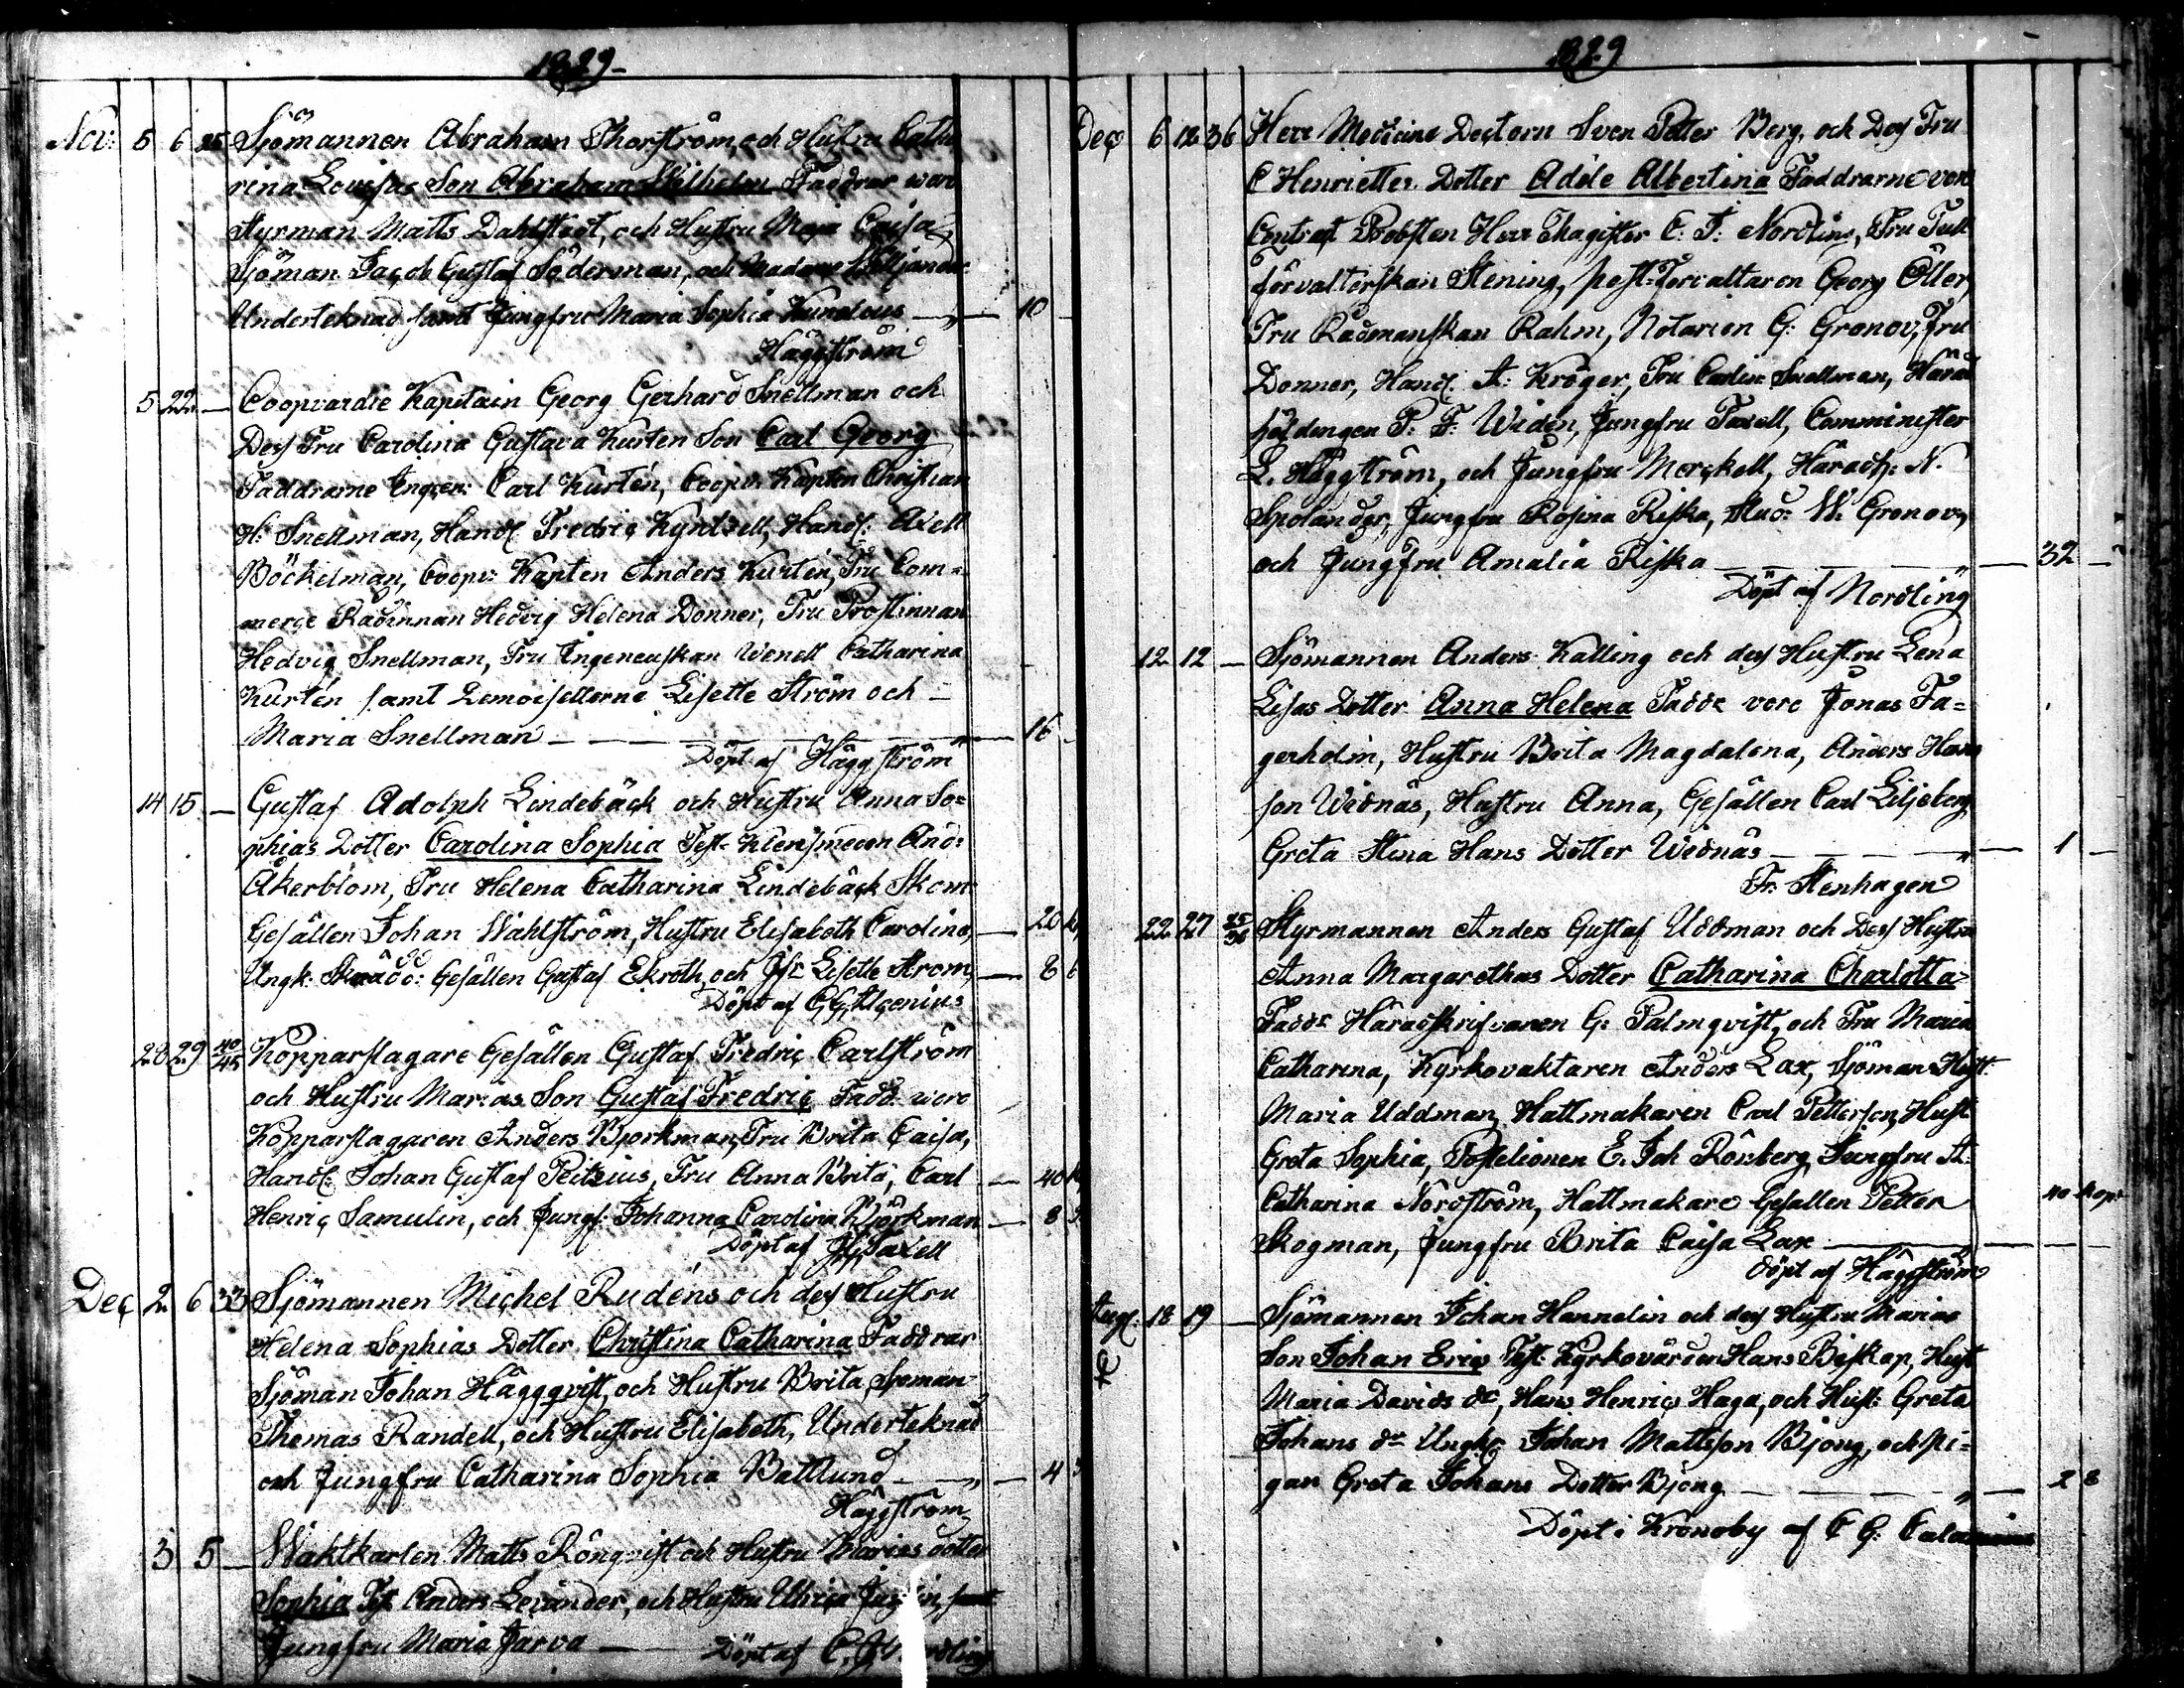 1829
Nov: 5 6 25 Sjömannen Abraham Thorström, och Hustru Catha
rina Lovisas Son Abraham Wilhelm Faddrar vara
Styrman Matts Dahlstedt, och Hustru Maja Caisa
Sjöman Jacob Gustaf Söderman, och Madame
Underteknad samt Jungfru Maria Sophia — 10
Häggström
5 22 — Coopvardie Kapitain Georg Gerhard Snellman och
Dess Fru Carolina Gustava Kurten Son Carl Georg
Faddrarne Ingen: Carl Kurtén, Coopv: Kapten Christian
H: Snellman, Handl Fredric Kyntzell, Handl: Axell
Böckelman, Coopv: Kapten Anders Kurtén, Fru Com=
merce Rådinnan Hedvig Helena Donner, Fru Prostinnan
Hedvig Snellman, Fru Ingeneuskan Wenell Catharina
Kurtén samt Demoisellerne Lisette Ström och
Maria Snellman — 16
Döpt af Häggström
14 15 — Gustaf Adolph Lindebäck och Hustru Anna So=
phias Dotter Carolina Sophia Test: And:
Åkerblom, Fru Helena Catharina Lindebäck Skom:
Gesällen Johan Wahlström, Hustru Elisabeth Carolina, — 20 k
Ungk: Skrädd: Gesällen Gustaf Ekroth, och Jfr Lisette Strom, — 8 6
Döpt af
28 29 40/45 Kopparslagare Gesällen Gustaf Fredric Carlström
och Hustru Marias Son Gustaf Fredric Fadd: vore
Kopparslagaren Anders Bjorkman, Fru Brita Caisa,
Handl: Johan Gustaf Peitzius, Fru Anna Brita, Carl — 40 k
Henric Samulin, och Jungf: Johanna Carolina Björkman — 8
Döpt af Taxell
Dec 2 6 33 Sjömannen Michel Rudéns och dess Hustru
Helena Sophias Dotter Christina Catharina Faddrar
Sjöman Johan Häggqvist, och Hustru Brita, Sjöman
Thomas Randell, och Hustru Elisabeth, Underteknad
och Jungfru Catharina Sophia Battlund — 4
Häggstrom
3 5 — Waktkarlen Matts Rönqvist och Hustru Marias dotter
Sophia Test Anders Levander, och Hustru Ulrica
Jungfru Maria Jarva — Döpt af
1829
Dec 6 12 36 Herr Medicine Doctorn Sven Petter Berg, och Dess Fru
C Henriettes Dotter Adèle Albertina Faddrarne vore
Contract Probsten Herr Magister C: J: Nordling, Fru Tull
förvalterskan Stening, post-Förvaltaren Georg Öller,
Fru Rådmanskan Rahm, Notarien G: Gronov, Fru
Donner, Handl: A: Kröger, Fru Snellman, Härad
höfdingen P: F: Widén, Jungfru Taxell, Comminister
L. Häggström, och Jungfru Merckell, Häradsh: N.
Spolander, Jungfru Rosina Riska, Stud: W: Gronov,
och Jungfru Amalia Riska — 32
Döpt af Nordling
12 12 — Sjömannen Anders Kalling och dess Hustru Lena
Lisas Dotter Anna Helena Faddr vore Jonas Fa=
gerholm, Hustru Brita Magdalena, Anders Hans
son Widnäs, Hustru Anna, Gesällen Carl Liljeberg
Greta Stina Hans Dotter Widnäs — 1
Fr: Stenhagen
22 27 25/36 Styrmannen Anders Gustaf Uddman och Dess Hustru
Anna Margarethas Dotter Catharina Charlotta
Faddr Häradskrifvaren G: Palmqvist, och Fru Maria
Catharina, Kyrkovaktaren Anders Lax, Sjöman Hust
Maria Uddman, Hattmakaren Carl Petterson, Hust
Greta Sophia, Postelionen E. Joh Rönberg, Jungfru A:
Catharina Nordström, Hattmakare Gesällen Petter 40 kop:
Skogman, Jungfru Brita Caisa Lax —
döpt af Häggström
Aug: 18 19 — Sjömannen Johan Hannelin och dess Hustru Marias
Son Johan Eric Test: Kyrkovärden Hans Biskop, Hust
Maria Davids dr, Hans Henric Haga, och Hust: Greta
Johans dr Ungk: Johan Mattsson Bjong, och pi=
gan Greta Johans Dotter Bjong — 28
Döpt i Kronoby af C G: